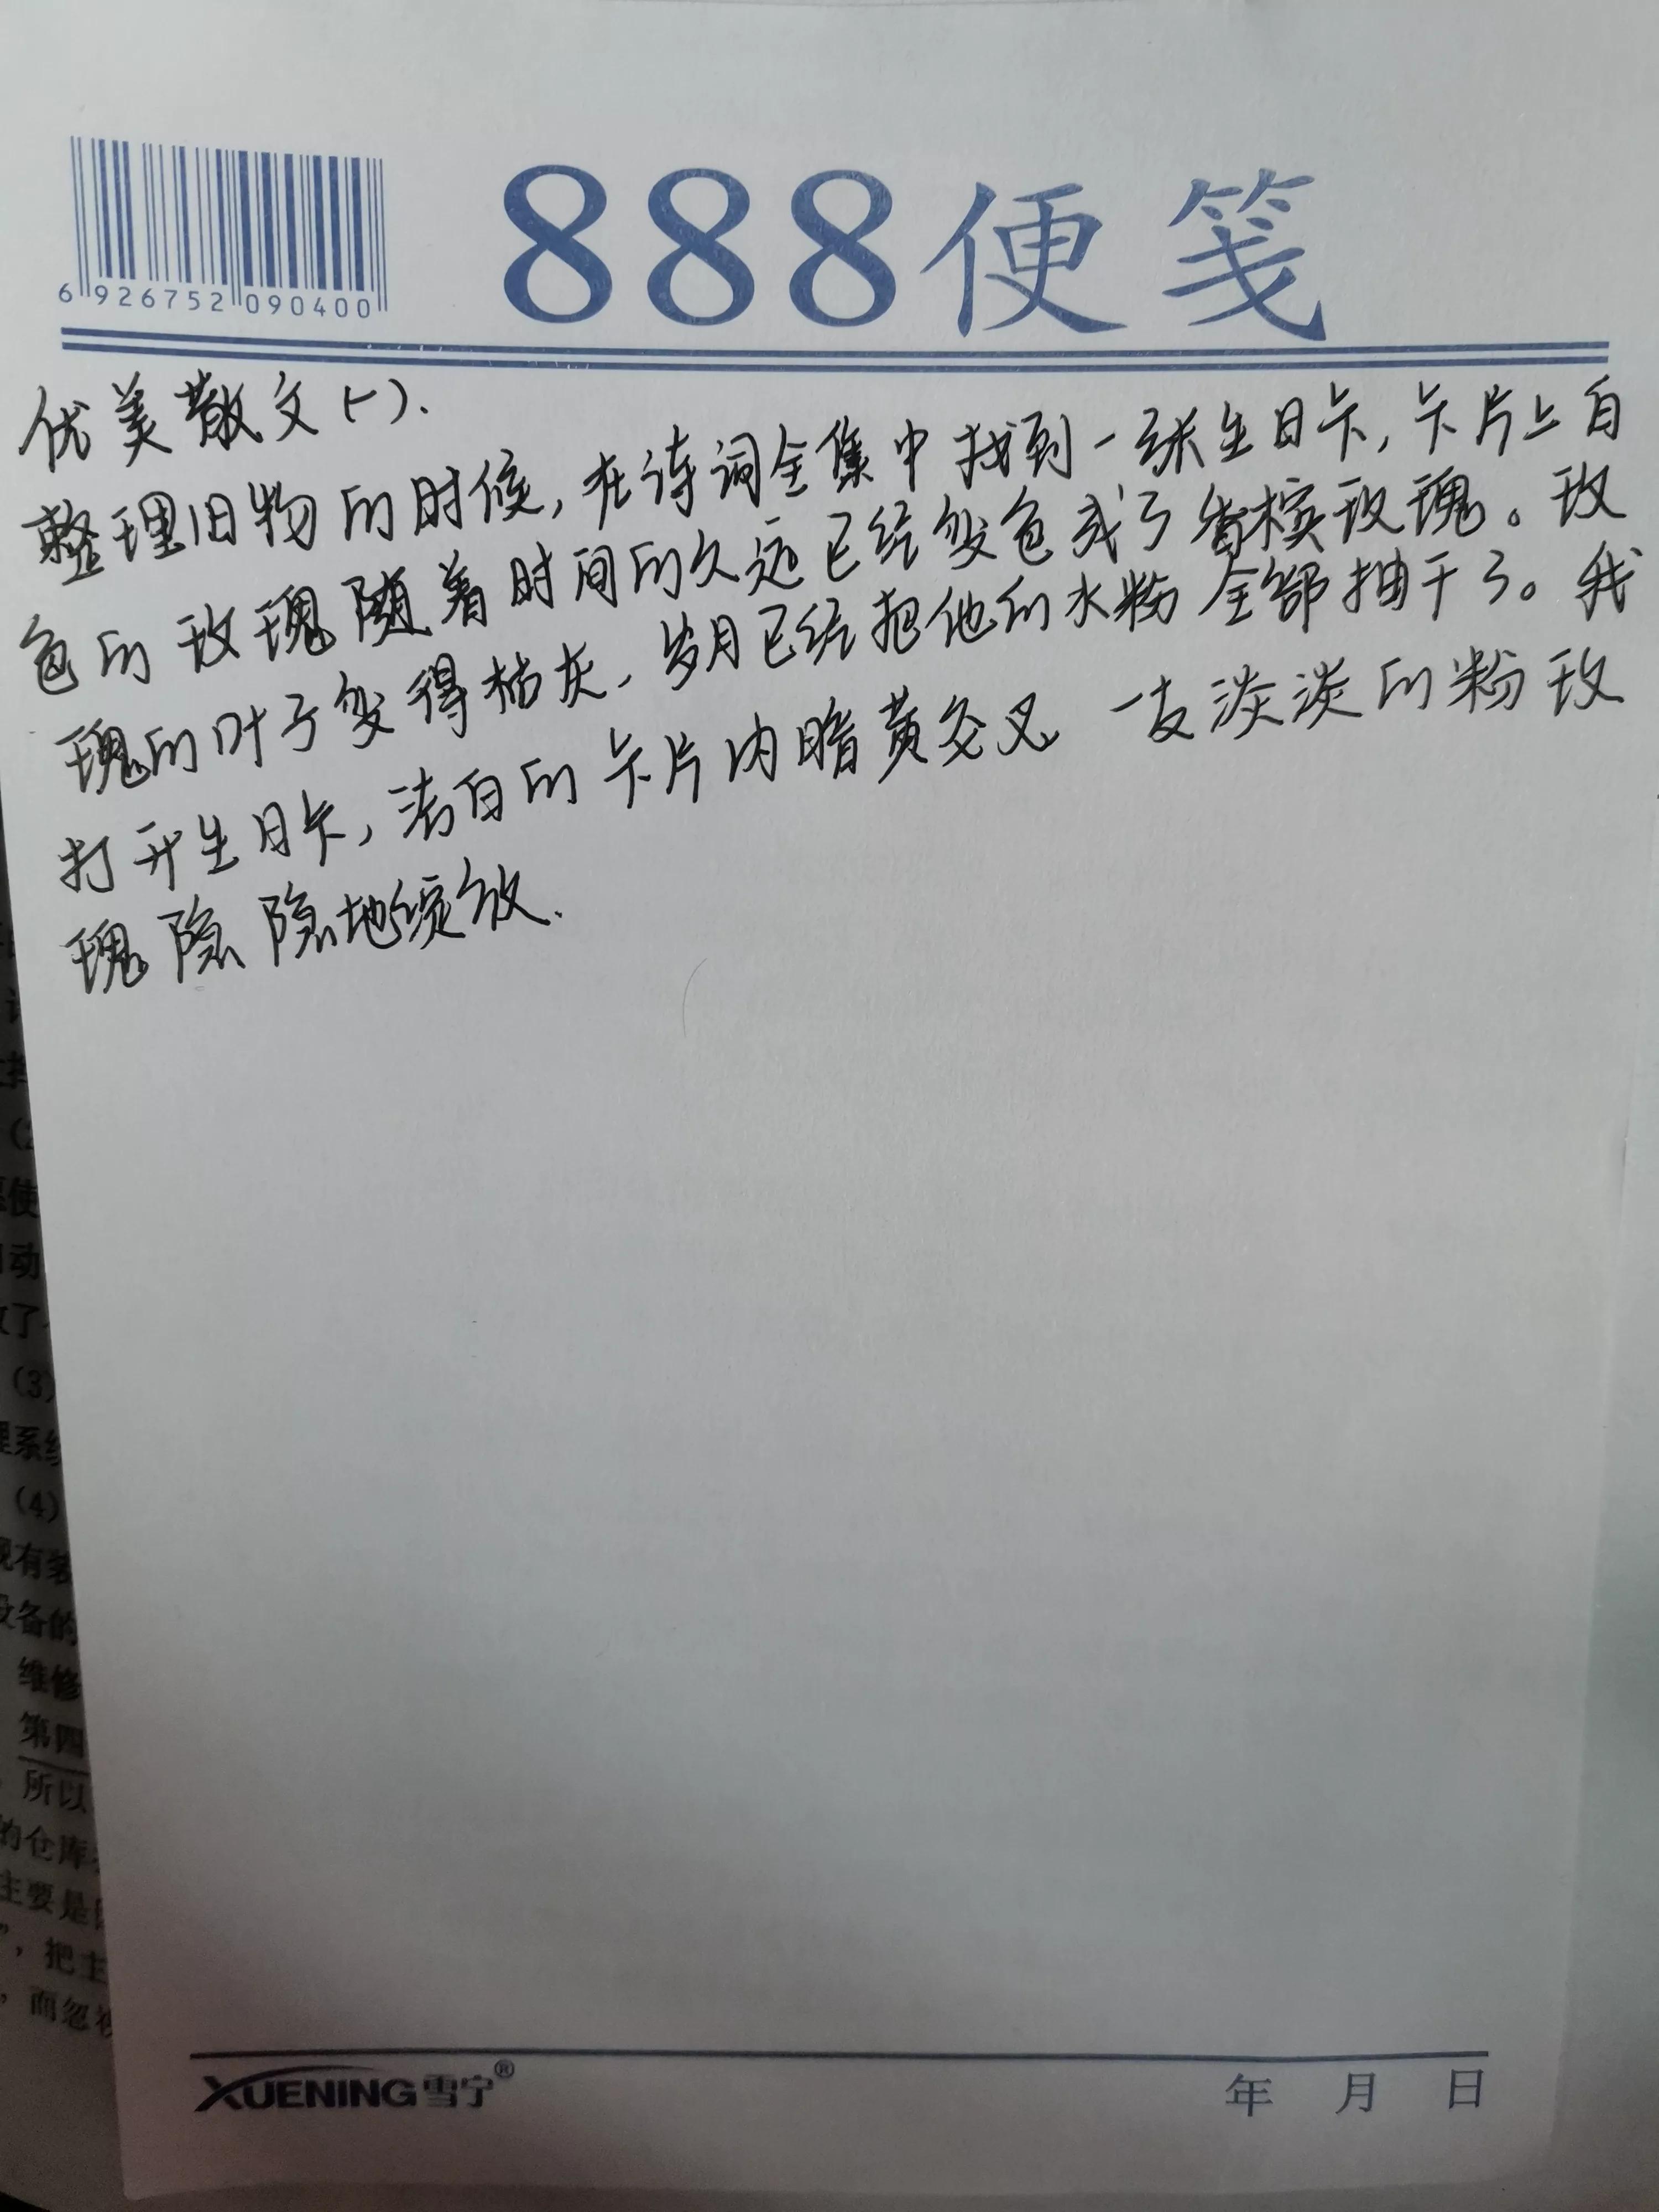 888便笺
6 926752 090400
优美散文(一).
整理旧物的时候,在诗词全集中找到一张生日卡,卡片上白
色的玫瑰随着时间的久远已经变色成了香槟玫瑰。玫
瑰的叶子变得枯灰、岁月已经把他的水粉全部抽干了。我
打开生日卡,洁白的卡片内暗黄交叉 一支淡淡的粉玫
瑰隐隐地绽放.
(3)
理系统
(4)
现有
设备的
维修
第四
所以
的仓库
主要是
”,把主
,而忽视
XUENING雪宁®
年 月 日